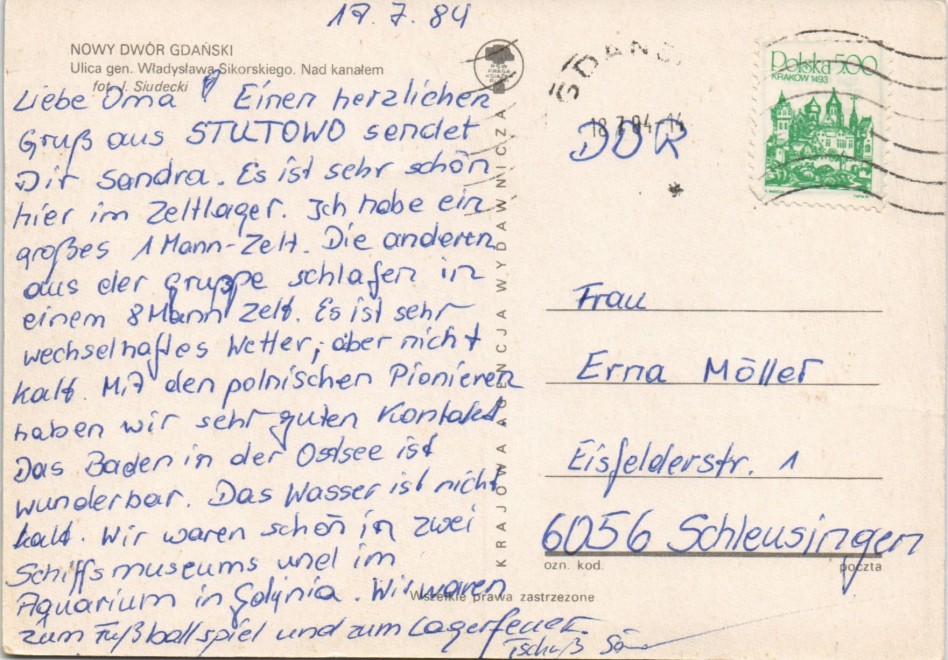 17.7.84
NOWY DWÓR GDAŃSKI
Ulica gen. Władysława Sikorskiego. Nad kanałem
fot. J. Siudecki
Liebe Oma! Einen herzlichen
Gruß aus STUTOWO sendet
Dir Sandra. Es ist sehr schön
hier im Zeltlager. Ich habe ein
großes 1 Mann-Zelt. Die anderen
aus der Gruppe schlafen in
einem 8 Mann Zelt. Es ist sehr
wechselhaftes Wetter, aber nicht
kalt. Mit den polnischen Pionieren
haben wir sehr guten Kontakt.
Das Baden in der Ostsee ist
wunderbar. Das Wasser ist nicht
kalt. Wir waren schon in zwei
Schiffsmuseums und im
Aquarium in Gdynia. Wir waren
zum Fußballspiel und zum Lagerfeuer.
Tschüß
KRAJOWA AGENCJA WYDAWNICZA
Wszelkie prawa zastrzeżone
GDAŃS
18.7.84-14
*
Polska 5.00
KRAKÓW 1493
DDR
Frau
Erna Möller
Eisfelderstr. 1
6056 Schleusingen
ozn. kod. poczta